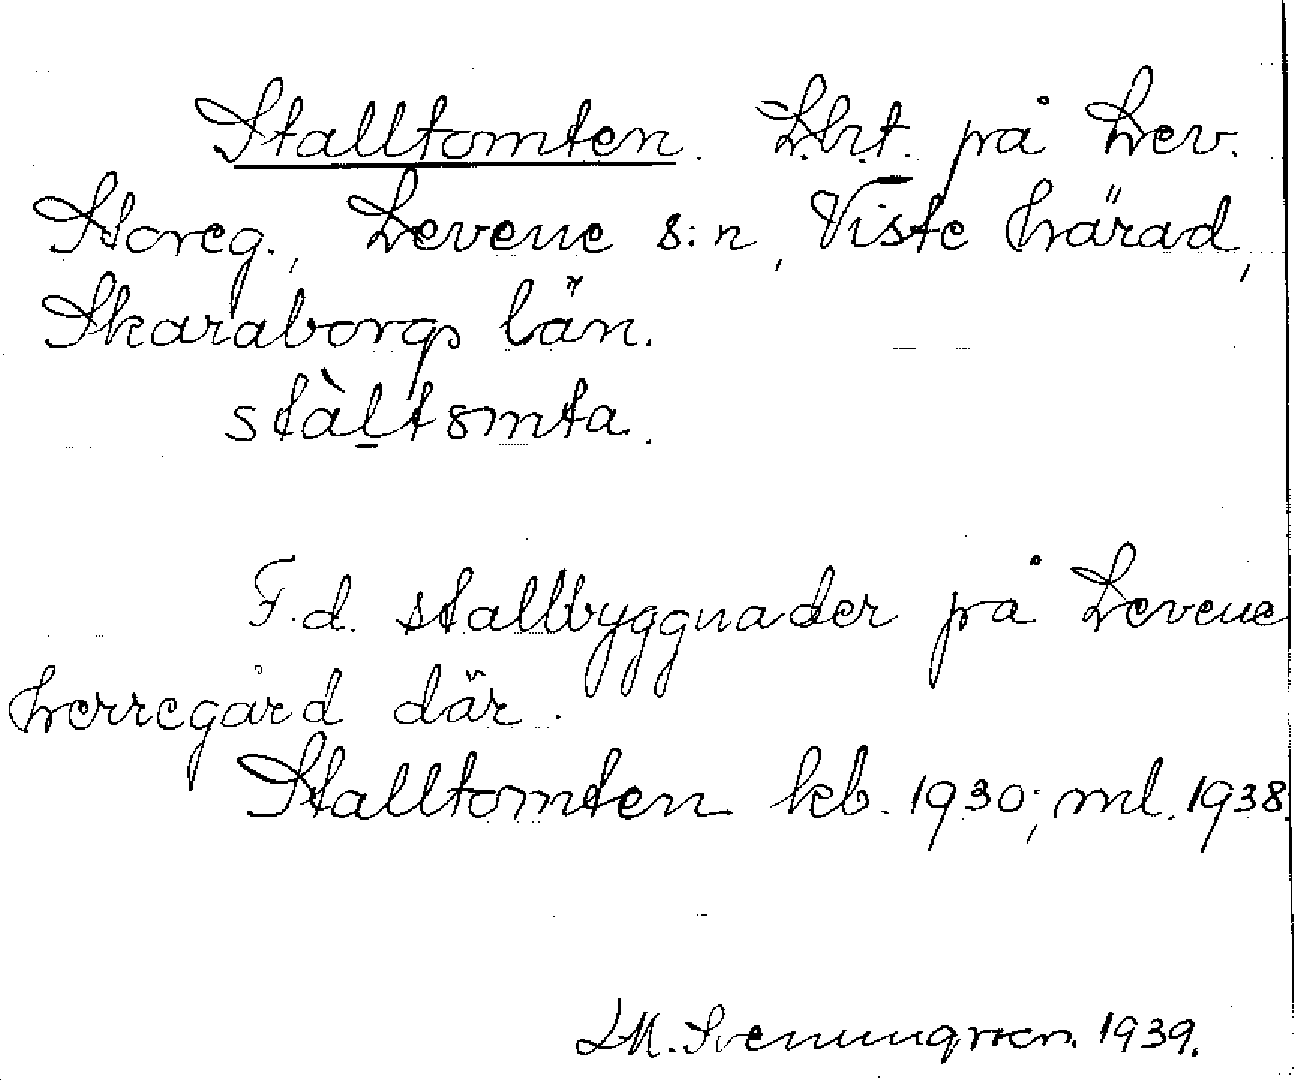 Stalltomten. Lht. på Lev.
Storeg., Levene s:n, Viste härad,
Skaraborgs län.
stàltomta.
F.d. stallbyggnader på Levene
herregård där.
Stalltomten kb. 1930; ml. 1938.
LM. Svenungsson. 1939.